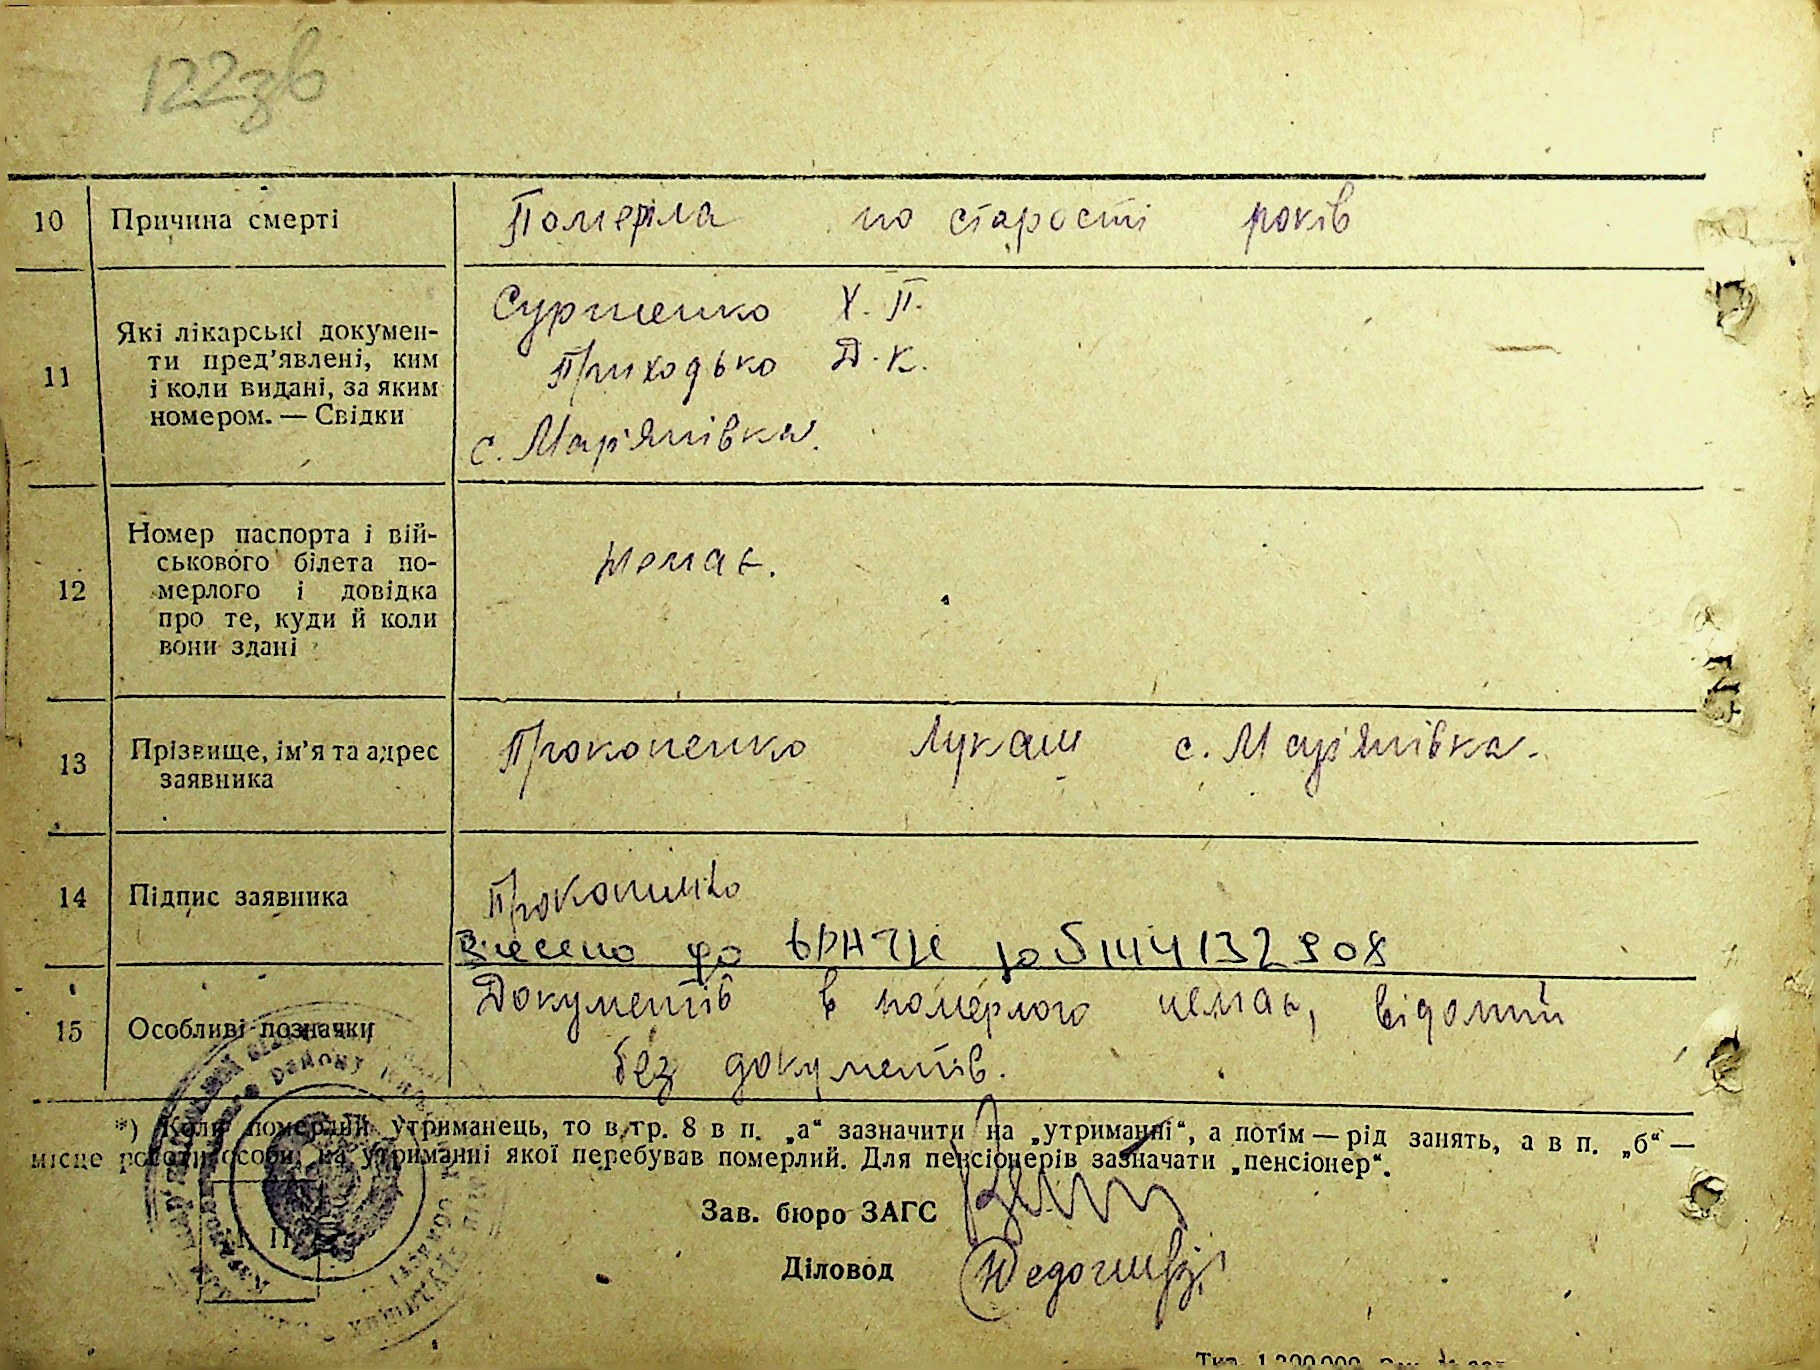 122зв
10 Причина смерті Померла по старості років
11 Які лікарські докумен-
ти пред'явлені, ким
і коли видані, за яким
номером. — Свідки
Сурженко Х. П.
Приходько Д. К.
с. Мар'янівка.
12 Номер паспорта і вій-
ськового білета по-
мерлого і довідка
про те, куди й коли
вони здані
немає.
13 Прізвище, ім'я та адрес
заявника
Прокопенко Лукаш с. Мар'янівка.
14 Підпис заявника Прокопенко
Внесено до 00144132908
15 Особливі позначки Документів в померлого немає, відомий
без документів.
*) Коли померлий утриманець, то в гр. 8 в п. „а“ зазначити на „утриманні“, а потім — рід занять, а в п. „б“ —
місце роботи особи, на утриманні якої перебував померлий. Для пенсіонерів зазначати „пенсіонер“.
Зав. бюро ЗАГС
Діловод